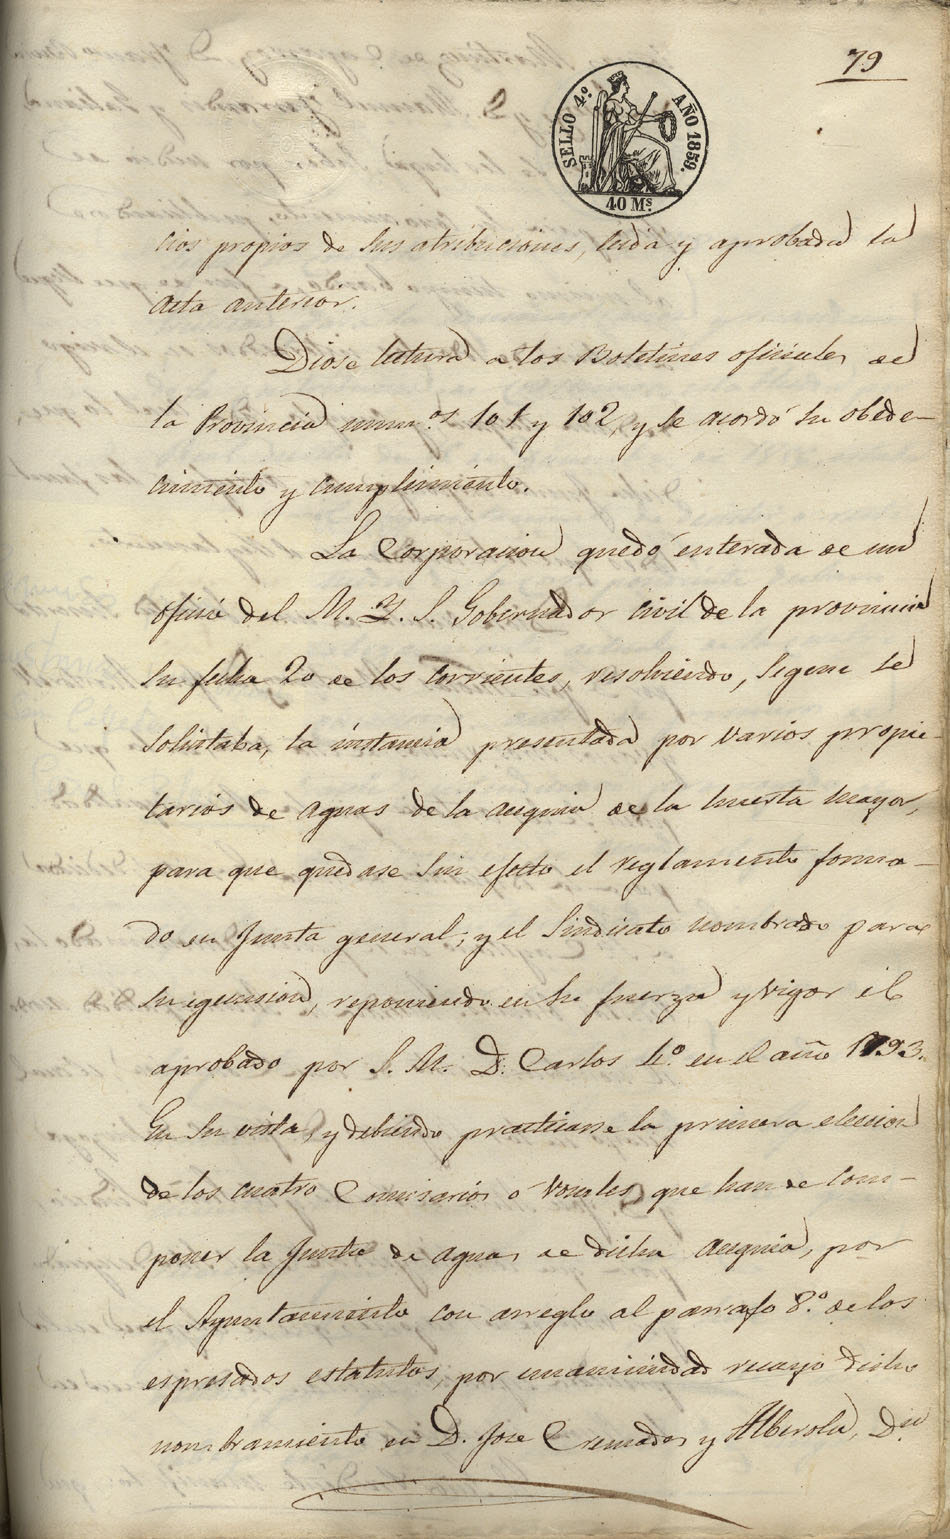 79
SELLO 4º AÑO 1859.
40 Ms.
cios propios de sus atribuciones, leida y aprobada la
acta anterior.
Diose lectura a los Boletines oficiales de
la Provincia num.os 101 y 102, y se acordó su obede-
cimiento y cumplimiento.
La Corporacion quedó enterada de un
oficio del M. Y. S. Gobernador Civil de la provincia
su fecha 20 de los corrientes, resolviendo, segun se
solicitaba, la instancia presentada por varios propie-
tarios de aguas de la acequia de la huerta mayor,
para que quedase sin efecto el reglamento forma-
do en Junta general, y el Sindicato nombrado para
su egecusion, reponiendo en su fuerza y vigor el
aprobado por S. M. D. Carlos 4.º en el año 1793.
En su vista, y debiendo practicarse la primera eleccion
de los cuatro Comisarios ó Vocales que han de com-
poner la Junta de aguas de dicha acequia, por
el Ayuntamiento con arreglo al parrafo 8.º de los
espresados estatutos, por unanimidad recayo dicho
nombramiento en D. Jose Cremades y Alberola, Dn